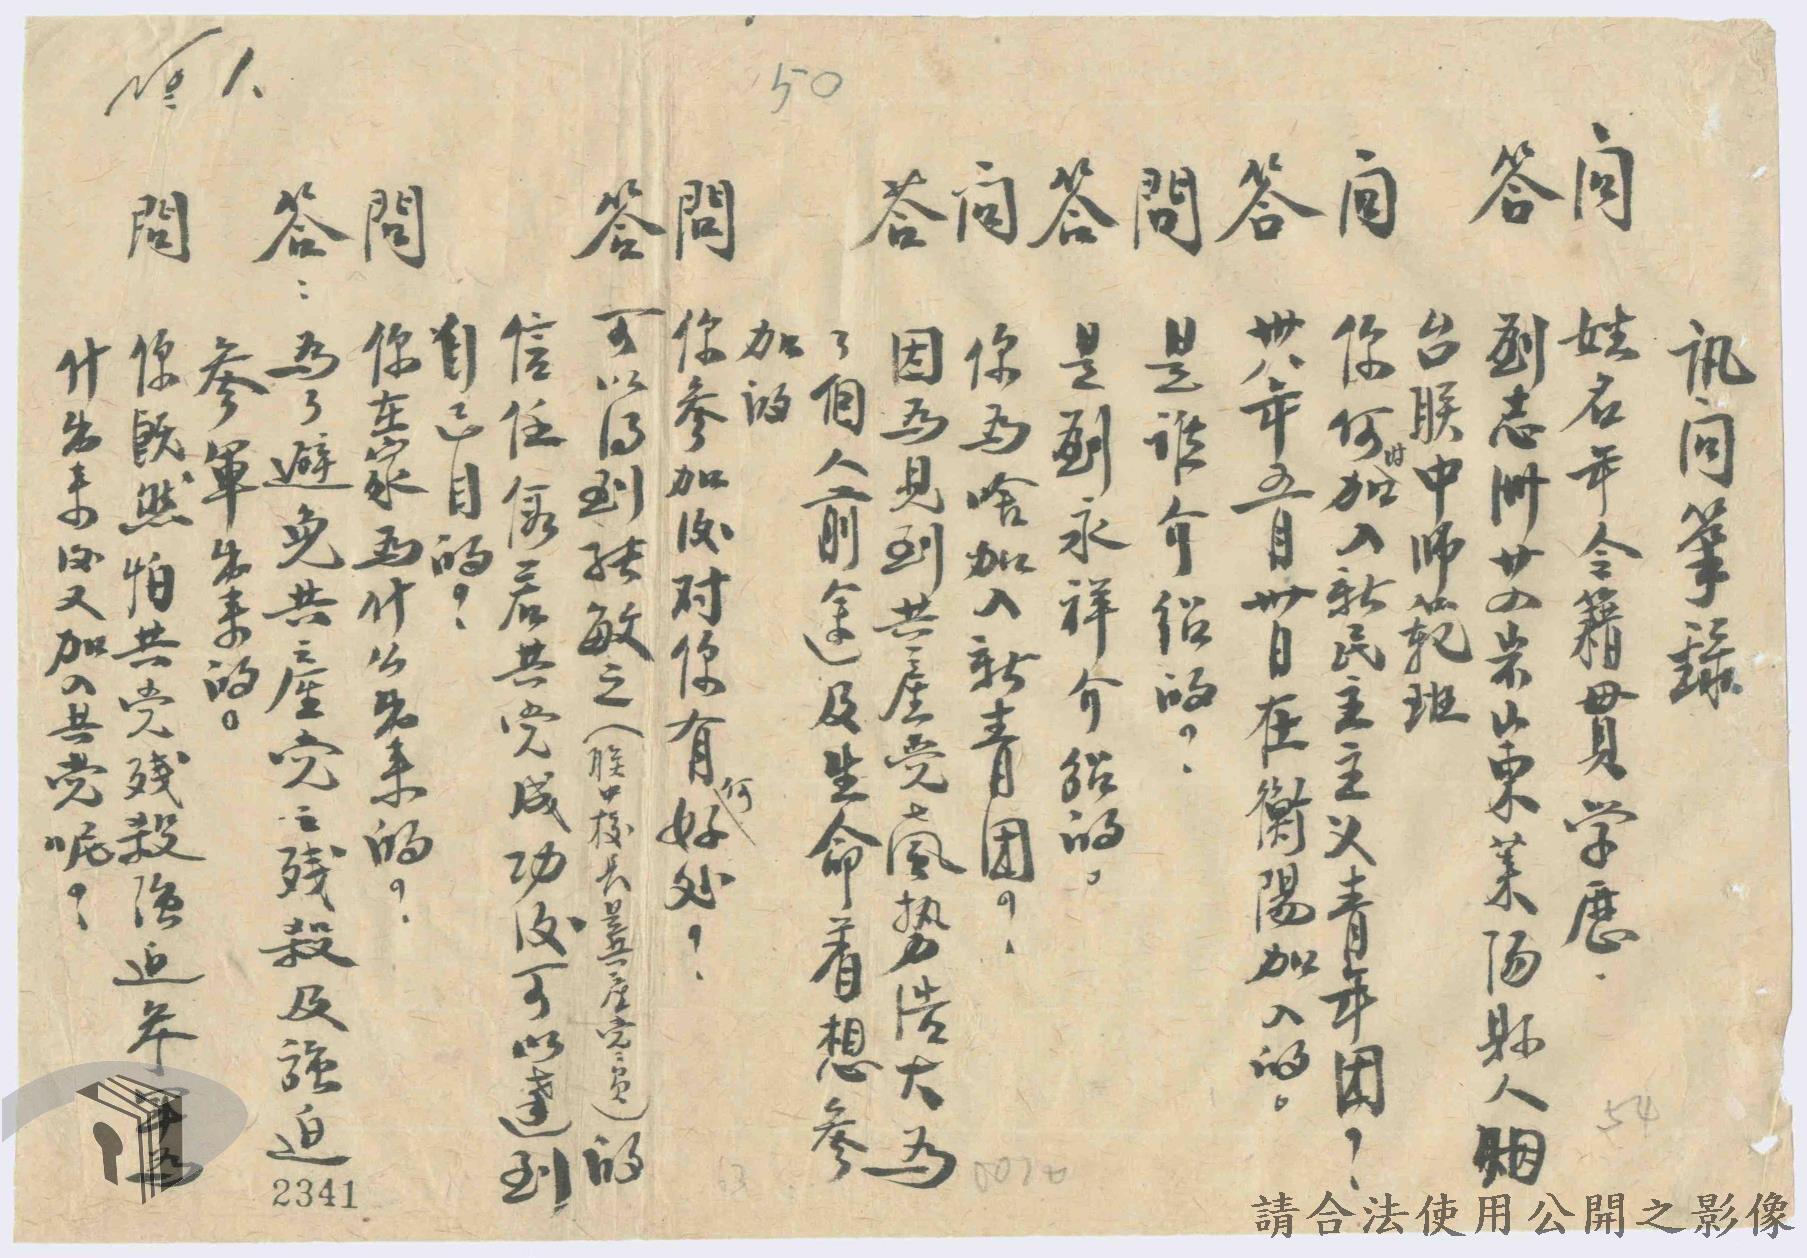 50
訊问筆錄
问 姓名年令籍貫学歷.
答 劉志洲廿四岁山東莱陽縣人烟
台联中师範班
问 你何時加入新民主主义青年团？
答 卅八年五月卅日在衡陽加入的。
問 是谁介绍的？
答 是劉永祥介绍的。
问 你為啥加入新青团？
答 因為見到共產党声势浩大為
了個人前途及生命着想參
加的
問 你參加後对你有何好处？
答 可以得到張敏之（联中校長是共產党員）的
信任 假若共党成功後可以達到
自己目的？
問 你在家為什么出来的？
答： 為了避免共產党之残殺及強迫
參軍出来的。
問 你既然怕共党残殺強迫参軍為
什出来後又加入共党呢？
54
2341
請合法使用公開之影像